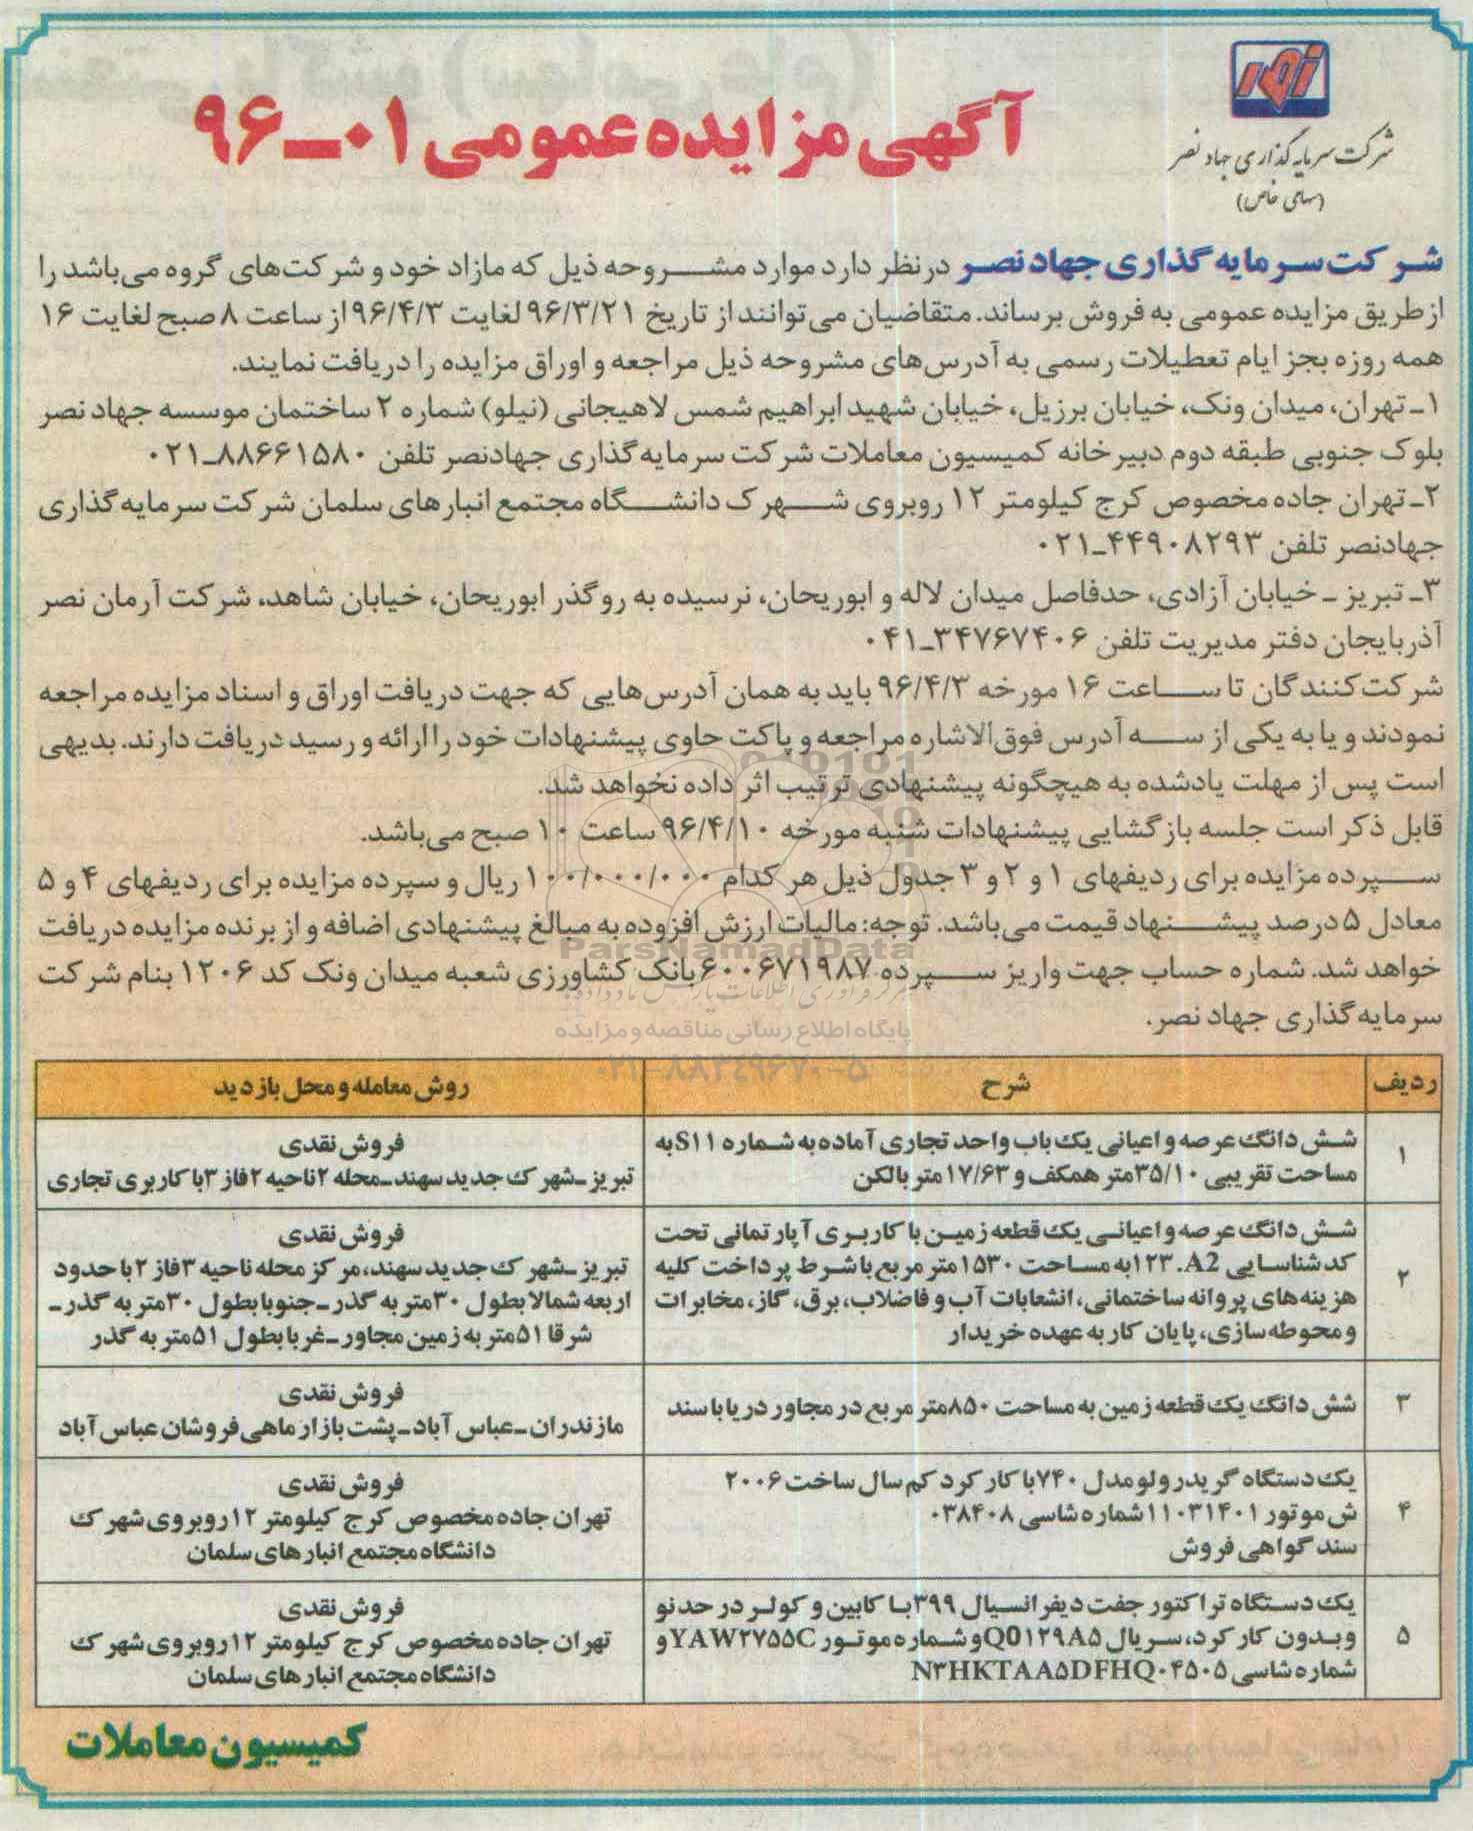 شرکت سرمایه گذاری جهاد نصر
(سهامی خاص)
آگهی مزایده عمومی ۰۱ـ۹۶
شرکت سرمایه گذاری جهاد نصر در نظر دارد موارد مشروحه ذیل که مازاد خود و شرکت‌های گروه می‌باشد را
از طریق مزایده عمومی به فروش برساند. متقاضیان می‌توانند از تاریخ ۹۶/۳/۲۱ لغایت ۹۶/۴/۳ از ساعت ۸ صبح لغایت ۱۶
همه روزه بجز ایام تعطیلات رسمی به آدرس‌های مشروحه ذیل مراجعه و اوراق مزایده را دریافت نمایند.
۱ـ تهران، میدان ونک، خیابان برزیل، خیابان شهید ابراهیم شمس لاهیجانی (نیلو) شماره ۲ ساختمان موسسه جهاد نصر
بلوک جنوبی طبقه دوم دبیرخانه کمیسیون معاملات شرکت سرمایه گذاری جهادنصر تلفن ۸۸۶۶۱۵۸۰ـ۰۲۱
۲ـ تهران جاده مخصوص کرج کیلومتر ۱۲ روبروی شهرک دانشگاه مجتمع انبارهای سلمان شرکت سرمایه گذاری
جهادنصر تلفن ۴۴۹۰۸۲۹۳ـ۰۲۱
۳ـ تبریز ـ خیابان آزادی، حدفاصل میدان لاله و ابوریحان، نرسیده به روگذر ابوریحان، خیابان شاهد، شرکت آرمان نصر
آذربایجان دفتر مدیریت تلفن ۳۴۷۶۷۴۰۶ـ۰۴۱
شرکت‌کنندگان تا ساعت ۱۶ مورخه ۹۶/۴/۳ باید به همان آدرس‌هایی که جهت دریافت اوراق و اسناد مزایده مراجعه
نمودند و یا به یکی از سه آدرس فوق‌الاشاره مراجعه و پاکت حاوی پیشنهادات خود را ارائه و رسید دریافت دارند. بدیهی
است پس از مهلت یادشده به هیچگونه پیشنهادی ترتیب اثر داده نخواهد شد.
قابل ذکر است جلسه بازگشایی پیشنهادات شنبه مورخه ۹۶/۴/۱۰ ساعت ۱۰ صبح می‌باشد.
سپرده مزایده برای ردیفهای ۱ و ۲ و ۳ جدول ذیل هر کدام ۱۰۰/۰۰۰/۰۰۰ ریال و سپرده مزایده برای ردیفهای ۴ و ۵
معادل ۵ درصد پیشنهاد قیمت می‌باشد. توجه: مالیات ارزش افزوده به مبالغ پیشنهادی اضافه و از برنده مزایده دریافت
خواهد شد. شماره حساب جهت واریز سپرده ۶۰۰۶۷۱۹۸۷ بانک کشاورزی شعبه میدان ونک کد ۱۲۰۶ بنام شرکت
سرمایه گذاری جهاد نصر.
ParsNamadData
پایگاه اطلاع رسانی مناقصه و مزایده
۰۲۱-۸۸۳۴۹۶۷۰-۵
ردیف شرح روش معامله و محل بازدید
۱
شش دانگ عرصه و اعیانی یک باب واحد تجاری آماده به شماره S۱۱ به
مساحت تقریبی ۳۵/۱۰ متر همکف و ۱۷/۶۳ متر بالکن
فروش نقدی
تبریز ـ شهرک جدید سهند ـ محله ۲ ناحیه ۲ فاز ۳ با کاربری تجاری
۲
شش دانگ عرصه و اعیانی یک قطعه زمین با کاربری آپارتمانی تحت
کد شناسایی A2.۱۲۳ به مساحت ۱۵۳۰ متر مربع با شرط پرداخت کلیه
هزینه‌های پروانه ساختمانی، انشعابات آب و فاضلاب، برق، گاز، مخابرات
و محوطه سازی، پایان کار به عهده خریدار
فروش نقدی
تبریز ـ شهرک جدید سهند، مرکز محله ناحیه ۳ فاز ۲ با حدود
اربعه شمالا بطول ۳۰ متر به گذر ـ جنوبا بطول ۳۰ متر به گذر ـ
شرقا ۵۱ متر به زمین مجاور ـ غربا بطول ۵۱ متر به گذر
۳
شش دانگ یک قطعه زمین به مساحت ۸۵۰ متر مربع در مجاور دریا با سند
فروش نقدی
مازندران ـ عباس آباد ـ پشت بازار ماهی فروشان عباس آباد
۴
یک دستگاه گریدر ولو مدل ۷۴۰ با کارکرد کم سال ساخت ۲۰۰۶
ش موتور ۱۱۰۳۱۴۰۱ شماره شاسی ۰۳۸۴۰۸
سند گواهی فروش
فروش نقدی
تهران جاده مخصوص کرج کیلومتر ۱۲ روبروی شهرک
دانشگاه مجتمع انبارهای سلمان
۵
یک دستگاه تراکتور جفت دیفرانسیال ۳۹۹ با کابین و کولر در حد نو
و بدون کارکرد، سریال Q0۱۲۹A۵ و شماره موتور YAW۲۷۵۵C و
شماره شاسی N۳HKTAA۵DFHQ۰۴۵۰۵
فروش نقدی
تهران جاده مخصوص کرج کیلومتر ۱۲ روبروی شهرک
دانشگاه مجتمع انبارهای سلمان
کمیسیون معاملات